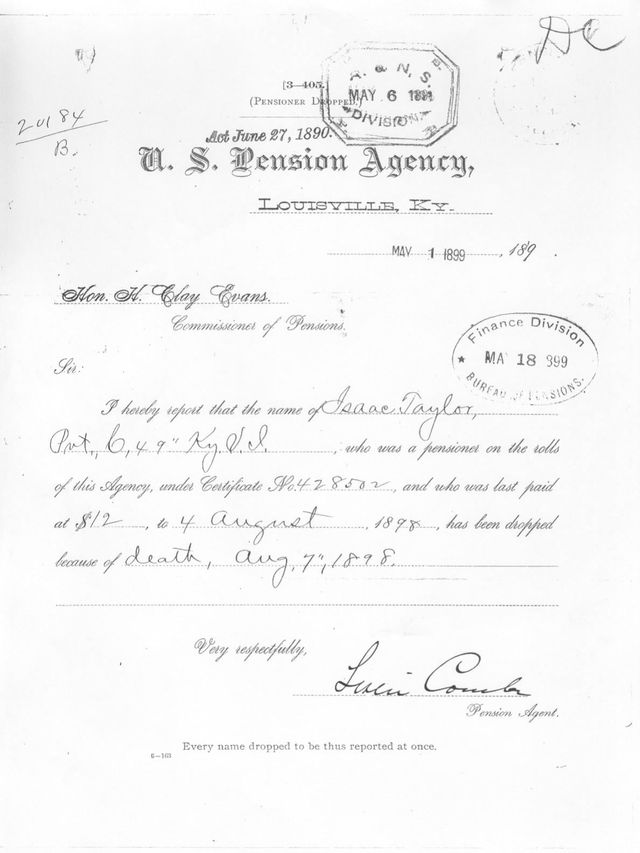 DC
[3—405.]
(Pensioner Dropped.)
A. & N. S.
MAY 6 189
DIVISION
20184
B.
Act June 27, 1890.
U. S. Pension Agency,
Louisville, Ky.
MAY 1 1899, 189 .
Hon. H. Clay Evans.
Commissioner of Pensions.
Finance Division
MA 18 899
BUREAU OF PENSIONS.
Sir:
I hereby report that the name of Isaac Taylor,
Pvt., C, 49" Ky. V. I. , who was a pensioner on the rolls
of this Agency, under Certificate No. 428502, and who was last paid
at $12 , to 4 August , 1898, has been dropped
because of death, Aug. 7", 1898.
Very respectfully,
Pension Agent.
Every name dropped to be thus reported at once.
6—163